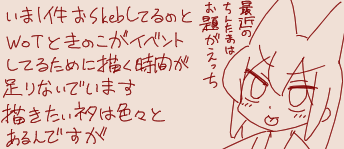 いま1件おSkebしてるのと
WoTときのこがイベント
してるために描く時間が
足りないでいます
描きたいネタは色々と
あるんですが
最近の
ちんたおは
お題がえっち